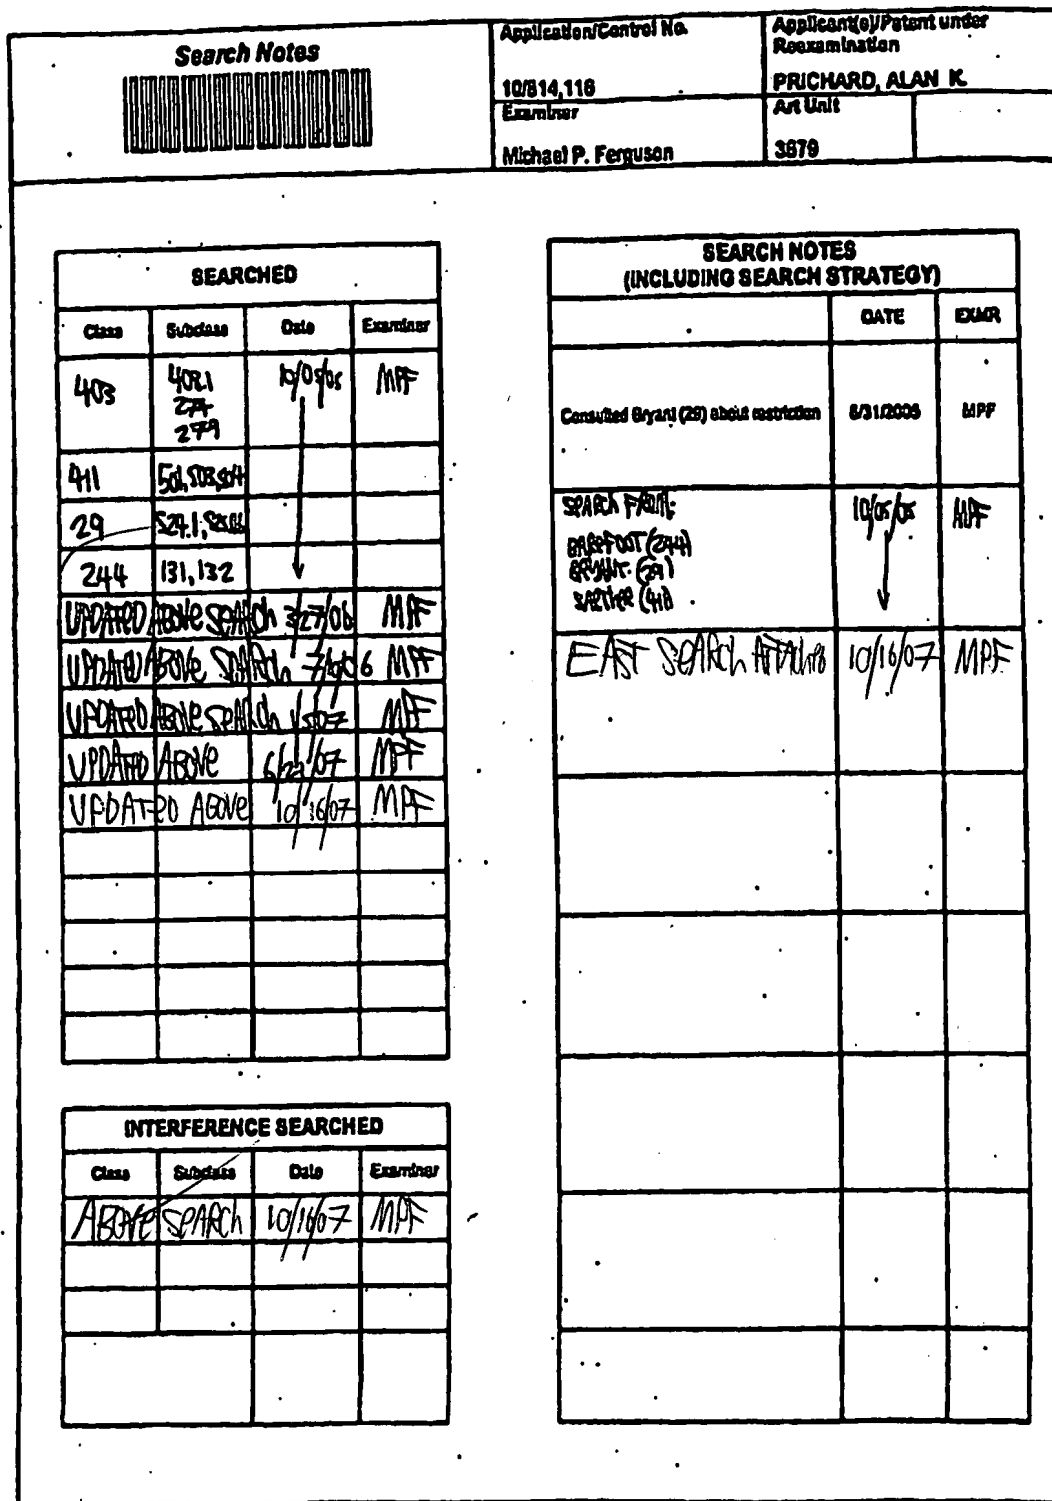 Search Notes
Application/Control No.
10/814,116
Applicant(s)/Patent under
Reexamination
PRICHARD, ALAN K.
Examiner
Michael P. Ferguson
Art Unit
3679
SEARCHED
Class Subclass Date Examiner
403 408.1 10/05/05 MPF
274
279
411 501, 503, 504
29
244 131, 132
UPDATED ABOVE SEARCH 3/27/06 MPF
UPDATED ABOVE SEARCH MPF
UPDATED ABOVE SEARCH MPF
UPDATED ABOVE 6/22/07 MPF
UPDATED ABOVE 10/16/07 MPF
INTERFERENCE SEARCHED
Class Subclass Date Examiner
ABOVE SEARCH 10/16/07 MPF
SEARCH NOTES
(INCLUDING SEARCH STRATEGY)
DATE EXMR
Consulted Bryant (29) about restriction 8/31/2005 MPF
SEARCH FROM: 10/05/05 MPF
BAREFOOT (244)
BRYANT (29)
(411)
EAST SEARCH ATTACHED 10/16/07 MPF